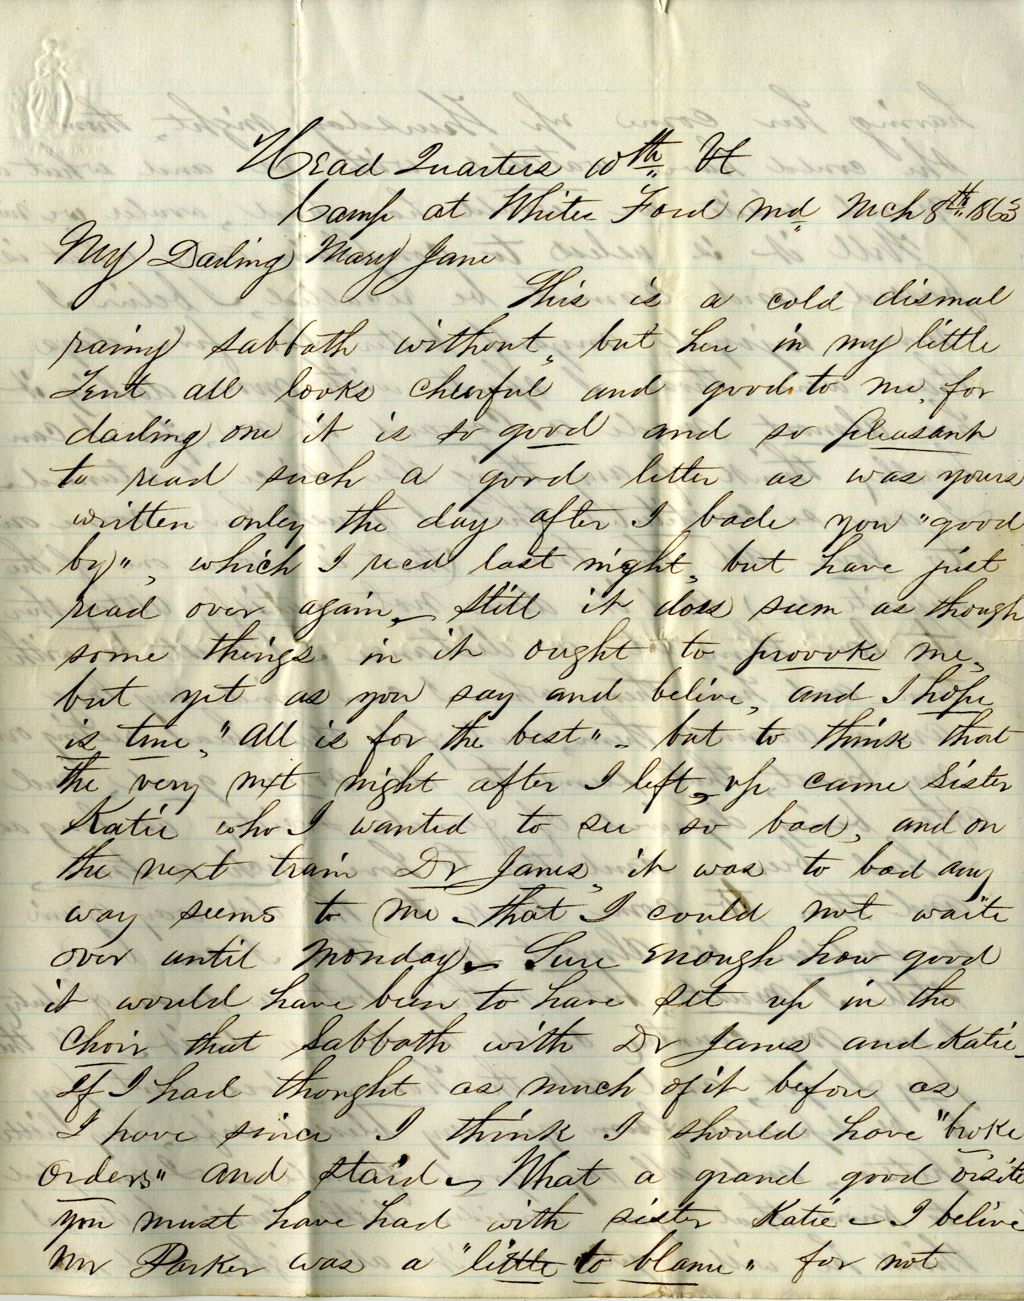 Head Quarters 10th Vt
Camp at White Ford Md Mch 8th 1863
My Darling Mary Jane
This is a cold dismal
rainy Sabbath without, but here in my little
Tent all looks cheerful and good to me, for
darling one it is so good and so pleasant
to read such a good letter as was yours
written only the day after I bade you "good
by", which I recd last night, but have just
read over again. Still it does seem as though
some things in it ought to provoke me,
but yet as you say and belive, and I hope
is true, "All is for the best" - but to think that
the very next night after I left, up came Sister
Katie who I wanted to see so bad, and on
the next train Dr Janes, it was to bad any
way seems to me that I could not waite
over until Monday. Sure enough how good
it would have been to have set up in the
Choir that Sabbath with Dr Janes and Katie
If I had thought as much of it before as
I have since I think I should have "broke
orders" and staid. What a grand good visite
you must have had with sister Katie - I belive
Mr Parker was a "little to blame" for not